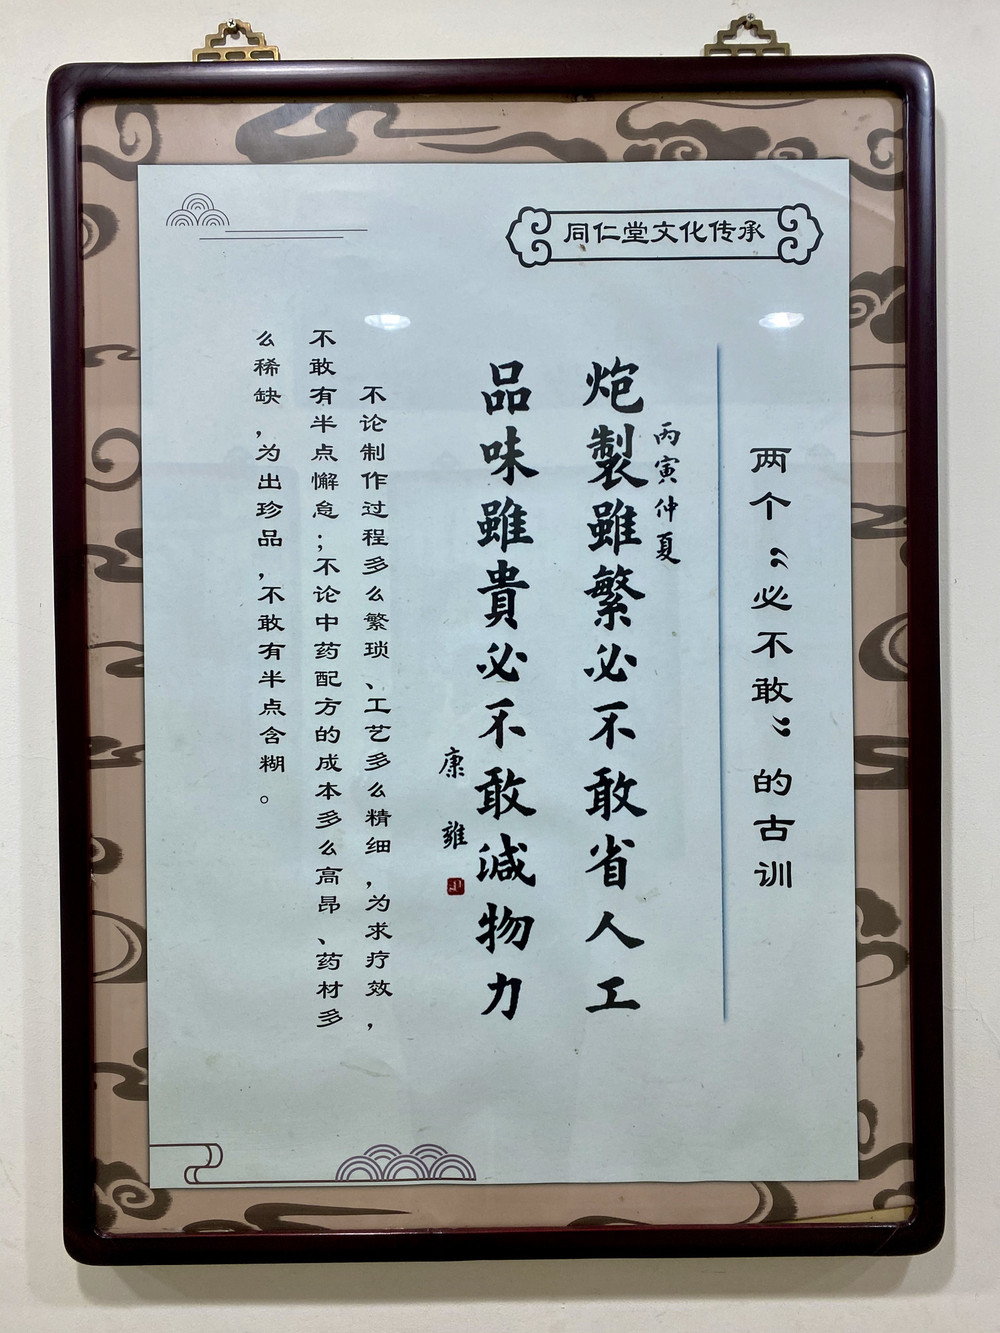 同仁堂文化传承
两个“必不敢”的古训
丙寅仲夏
炮製雖繁必不敢省人工
品味雖貴必不敢減物力
康雍
不论制作过程多么繁琐、工艺多么精细，为求疗效，
不敢有半点懈怠；不论中药配方的成本多么高昂、药材多
么稀缺，为出珍品，不敢有半点含糊。